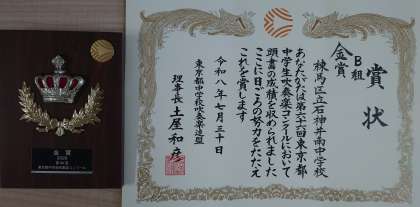 賞状
B組
金賞
練馬区立石神井南中学校
あなたがたは第六十六回東京都
中学生吹奏楽コンクールにおいて
頭書の成績を収められました
ここに日ごろの努力をたたえ
これを賞します
令和八年七月三十日
東京都中学校吹奏楽連盟
理事長 土屋和彦
金賞
2026